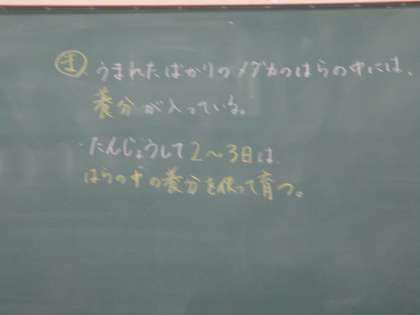 ま うまれたばかりのメダカのはらの中には、
養分が入っている。
・たんじょうして2～3日は
はらの中の養分を使って育つ。